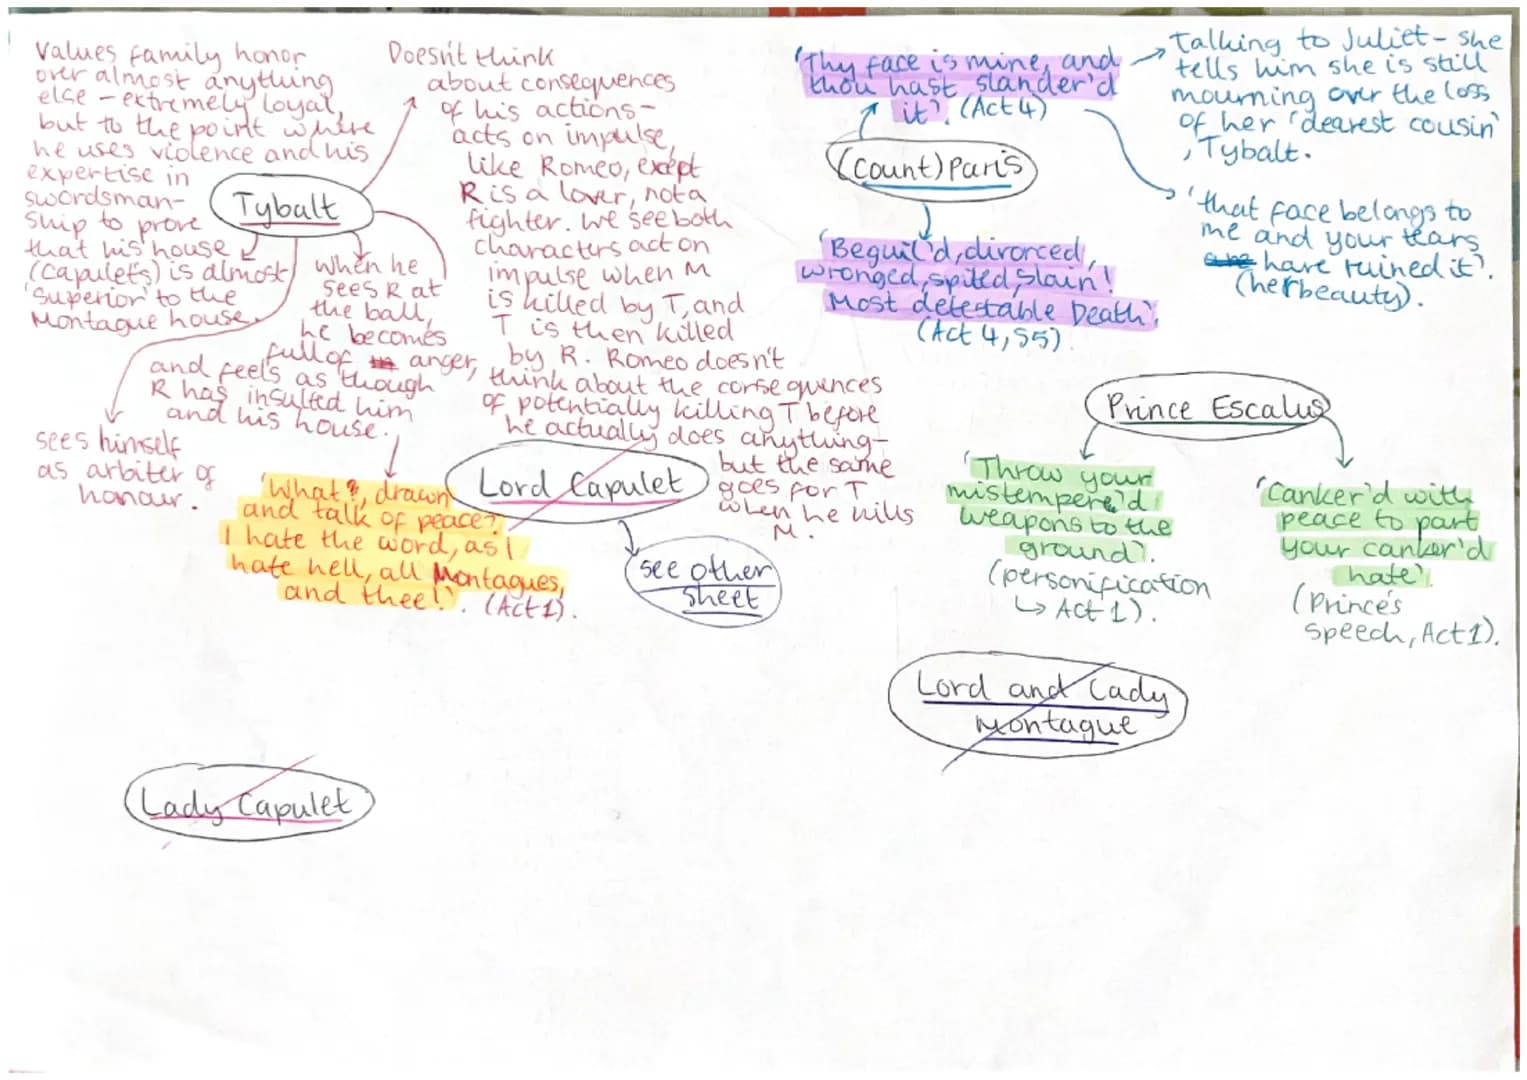 Values family honor
over almost anything
else - extremely loyal,
but to the point where
he uses violence and his
expertise in
swordsman-
ship to prove
that his house
(Capulet's) is almost
'superior' to the
Montague house.
Tybalt
Doesn't think
about consequences
of his actions -
acts on impulse,
like Romeo, except
R is a lover, not a
fighter. We see both
characters act on
impulse when M
is killed by T, and
T is then killed
by R. Romeo doesn't
think about the consequences
of potentially killing T before
he actually does anything -
but the same
goes for T
when he kills
M.
when he
sees R at
the ball,
he becomes
full of anger,
and feels as though
R has insulted him
and his house.
sees himself
as arbiter of
honour.
'What?, drawn
and talk of peace?
I hate the word, as I
hate hell, all Montagues,
and thee!'. (Act 1).
Lord Capulet
see other
sheet
Lady Capulet
'Thy face is mine, and
thou hast slander'd
it'. (Act 4)
(Count) Paris
'Beguil'd, divorced,
wronged, spited, slain!
Most detestable Death'.
(Act 4, S5).
Talking to Juliet - she
tells him she is still
mourning over the loss
of her 'dearest cousin'
, Tybalt.
'that face belongs to
me and your tears
have ruined it'.
(her beauty).
Prince Escalus
'Throw your
mistempere'd
weapons to the
ground'.
(personification
↳ Act 1).
'Canker'd with
peace to part
your canker'd
hate'.
(Prince's
speech, Act 1).
Lord and Lady
Montague